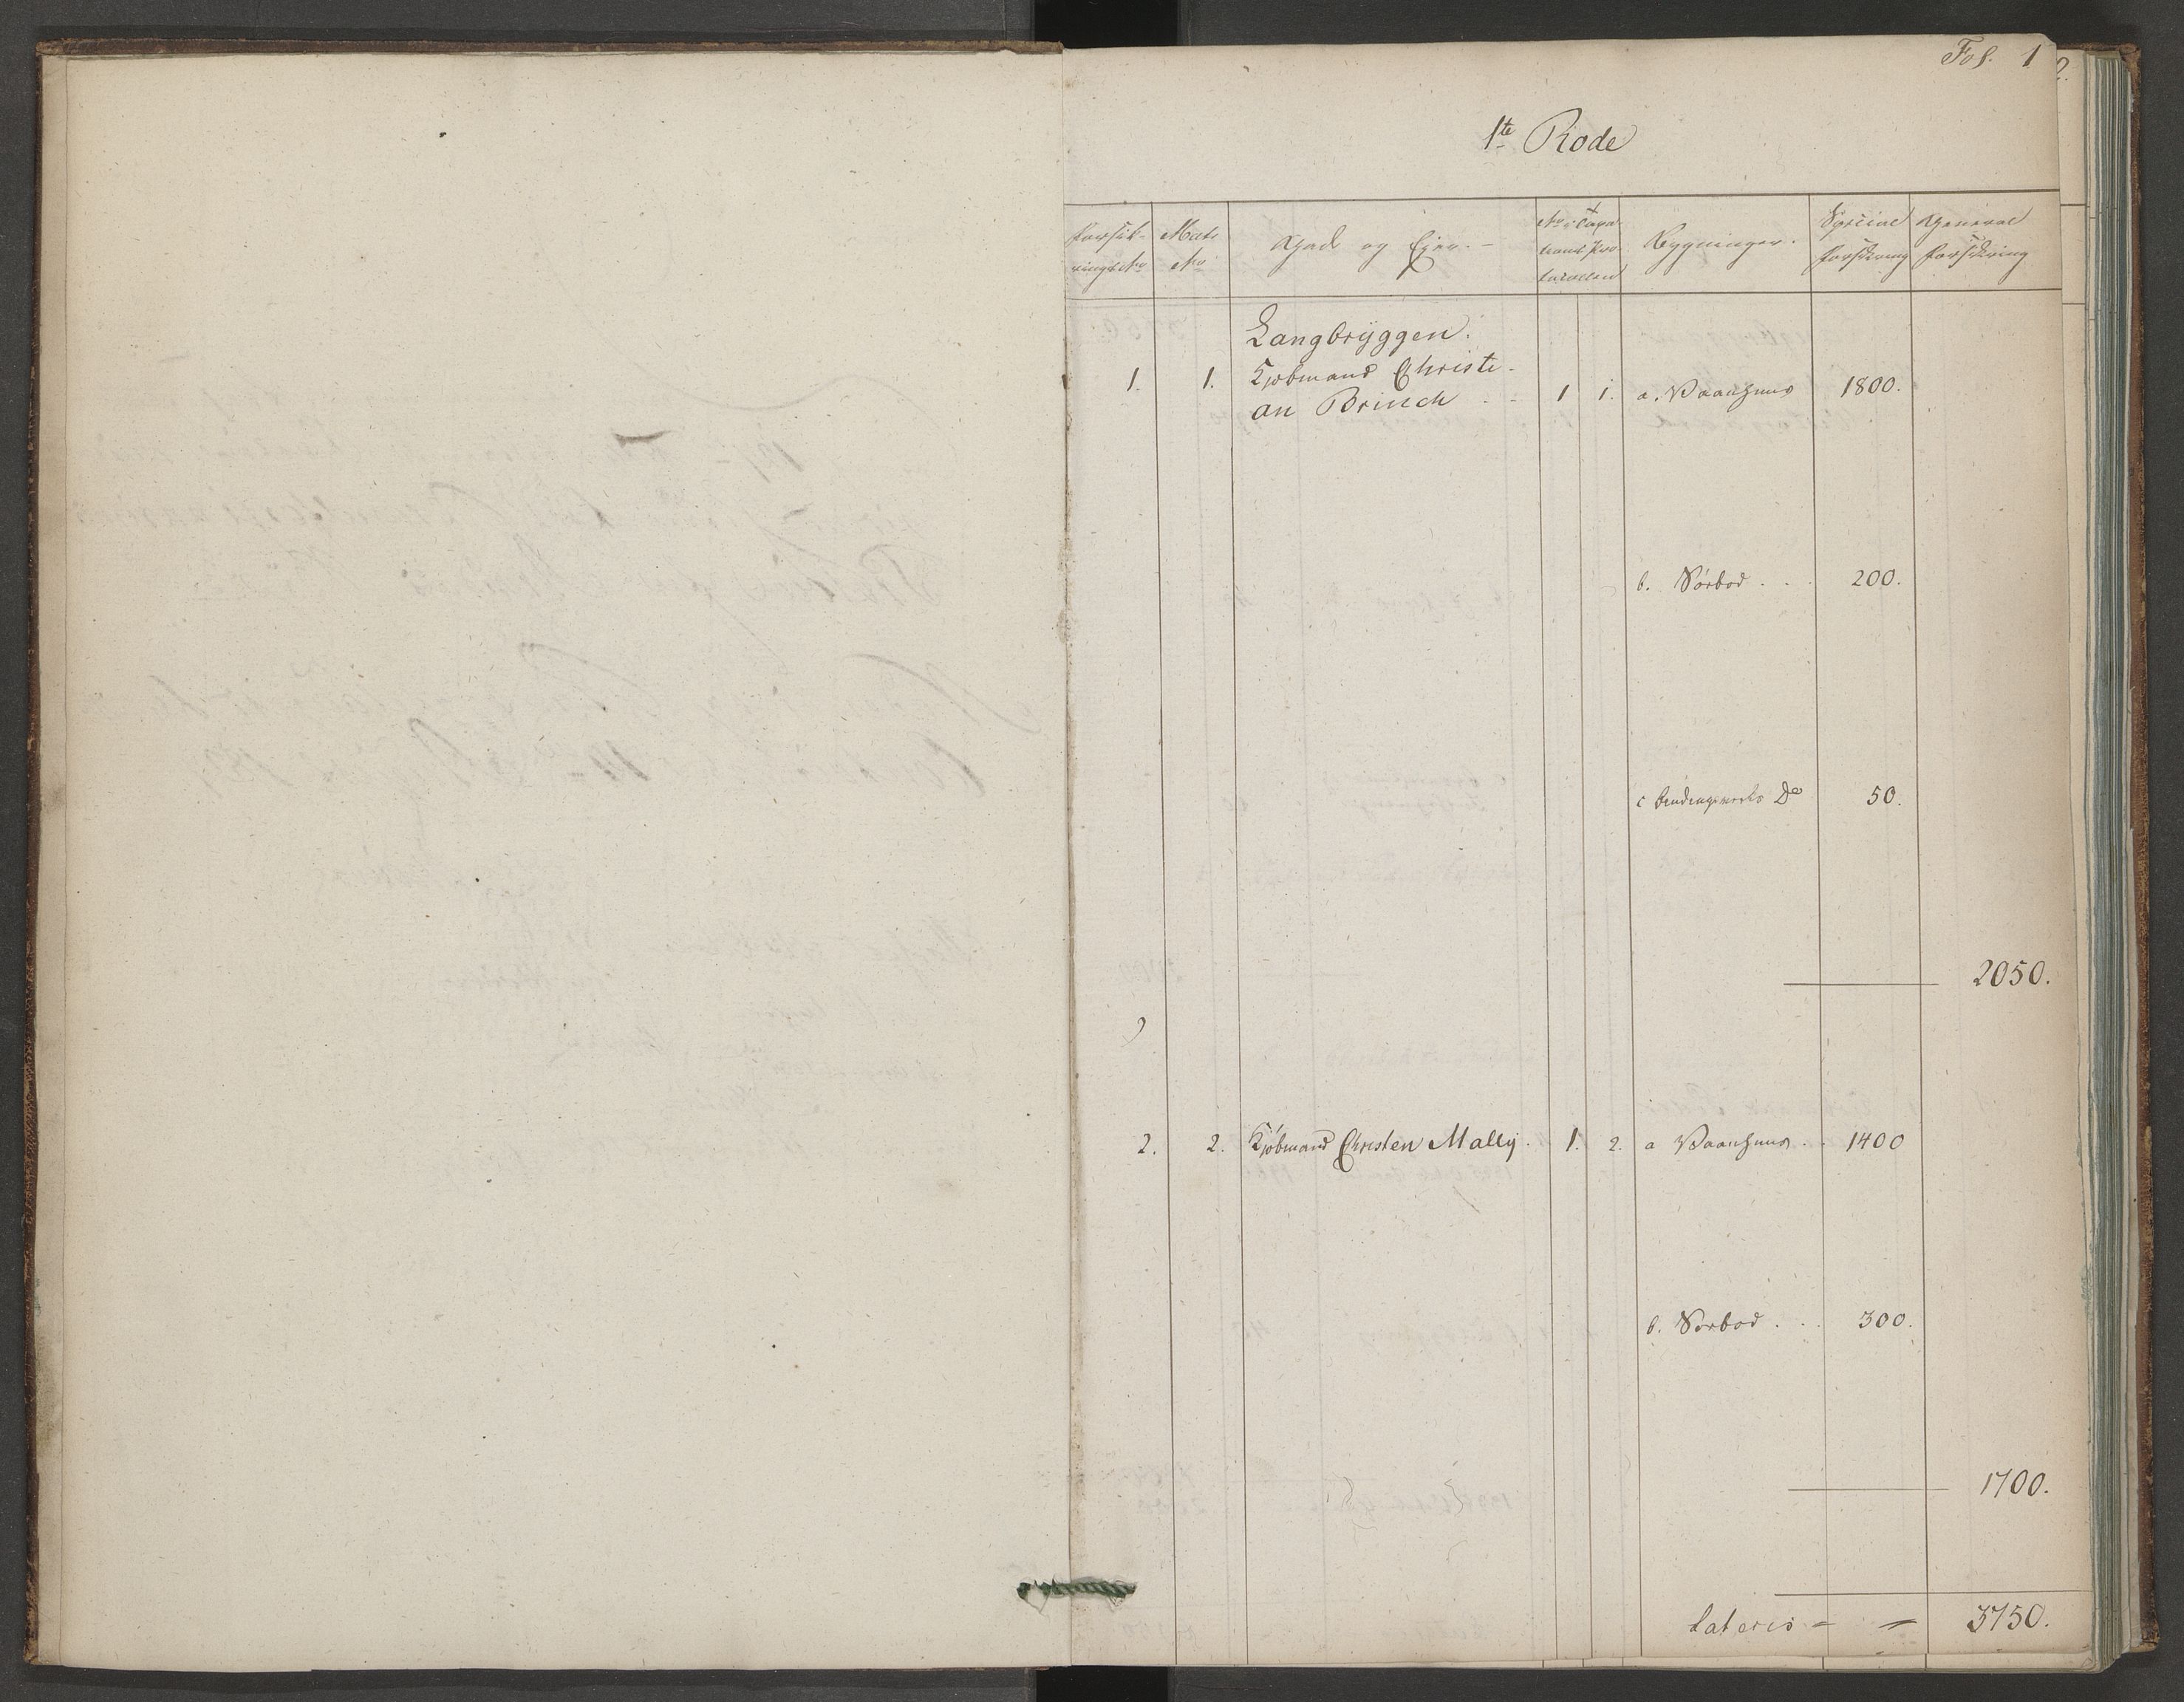 Fol. 1
1te Rode
Forsik-
rings No
Matr
No
Gade og Ejer.
No i Taxa-
tions Pro-
tocollen
Bygninger.
Special
Forsikring
General
Forsikring
Langbryggen.
1. 1. Kjøbmand Christi-
an Brinch - - 1 1. a. Vaanhuus 1800.
b. Sørbod . . 200.
c bindingsværks Do 50.
2050.
2. 2. Kjøbmand Christen Mally. 1. 2. a Vaanhuus . . 1400
b. Sørbod . . 300.
1700.
Lateris = = 3750.